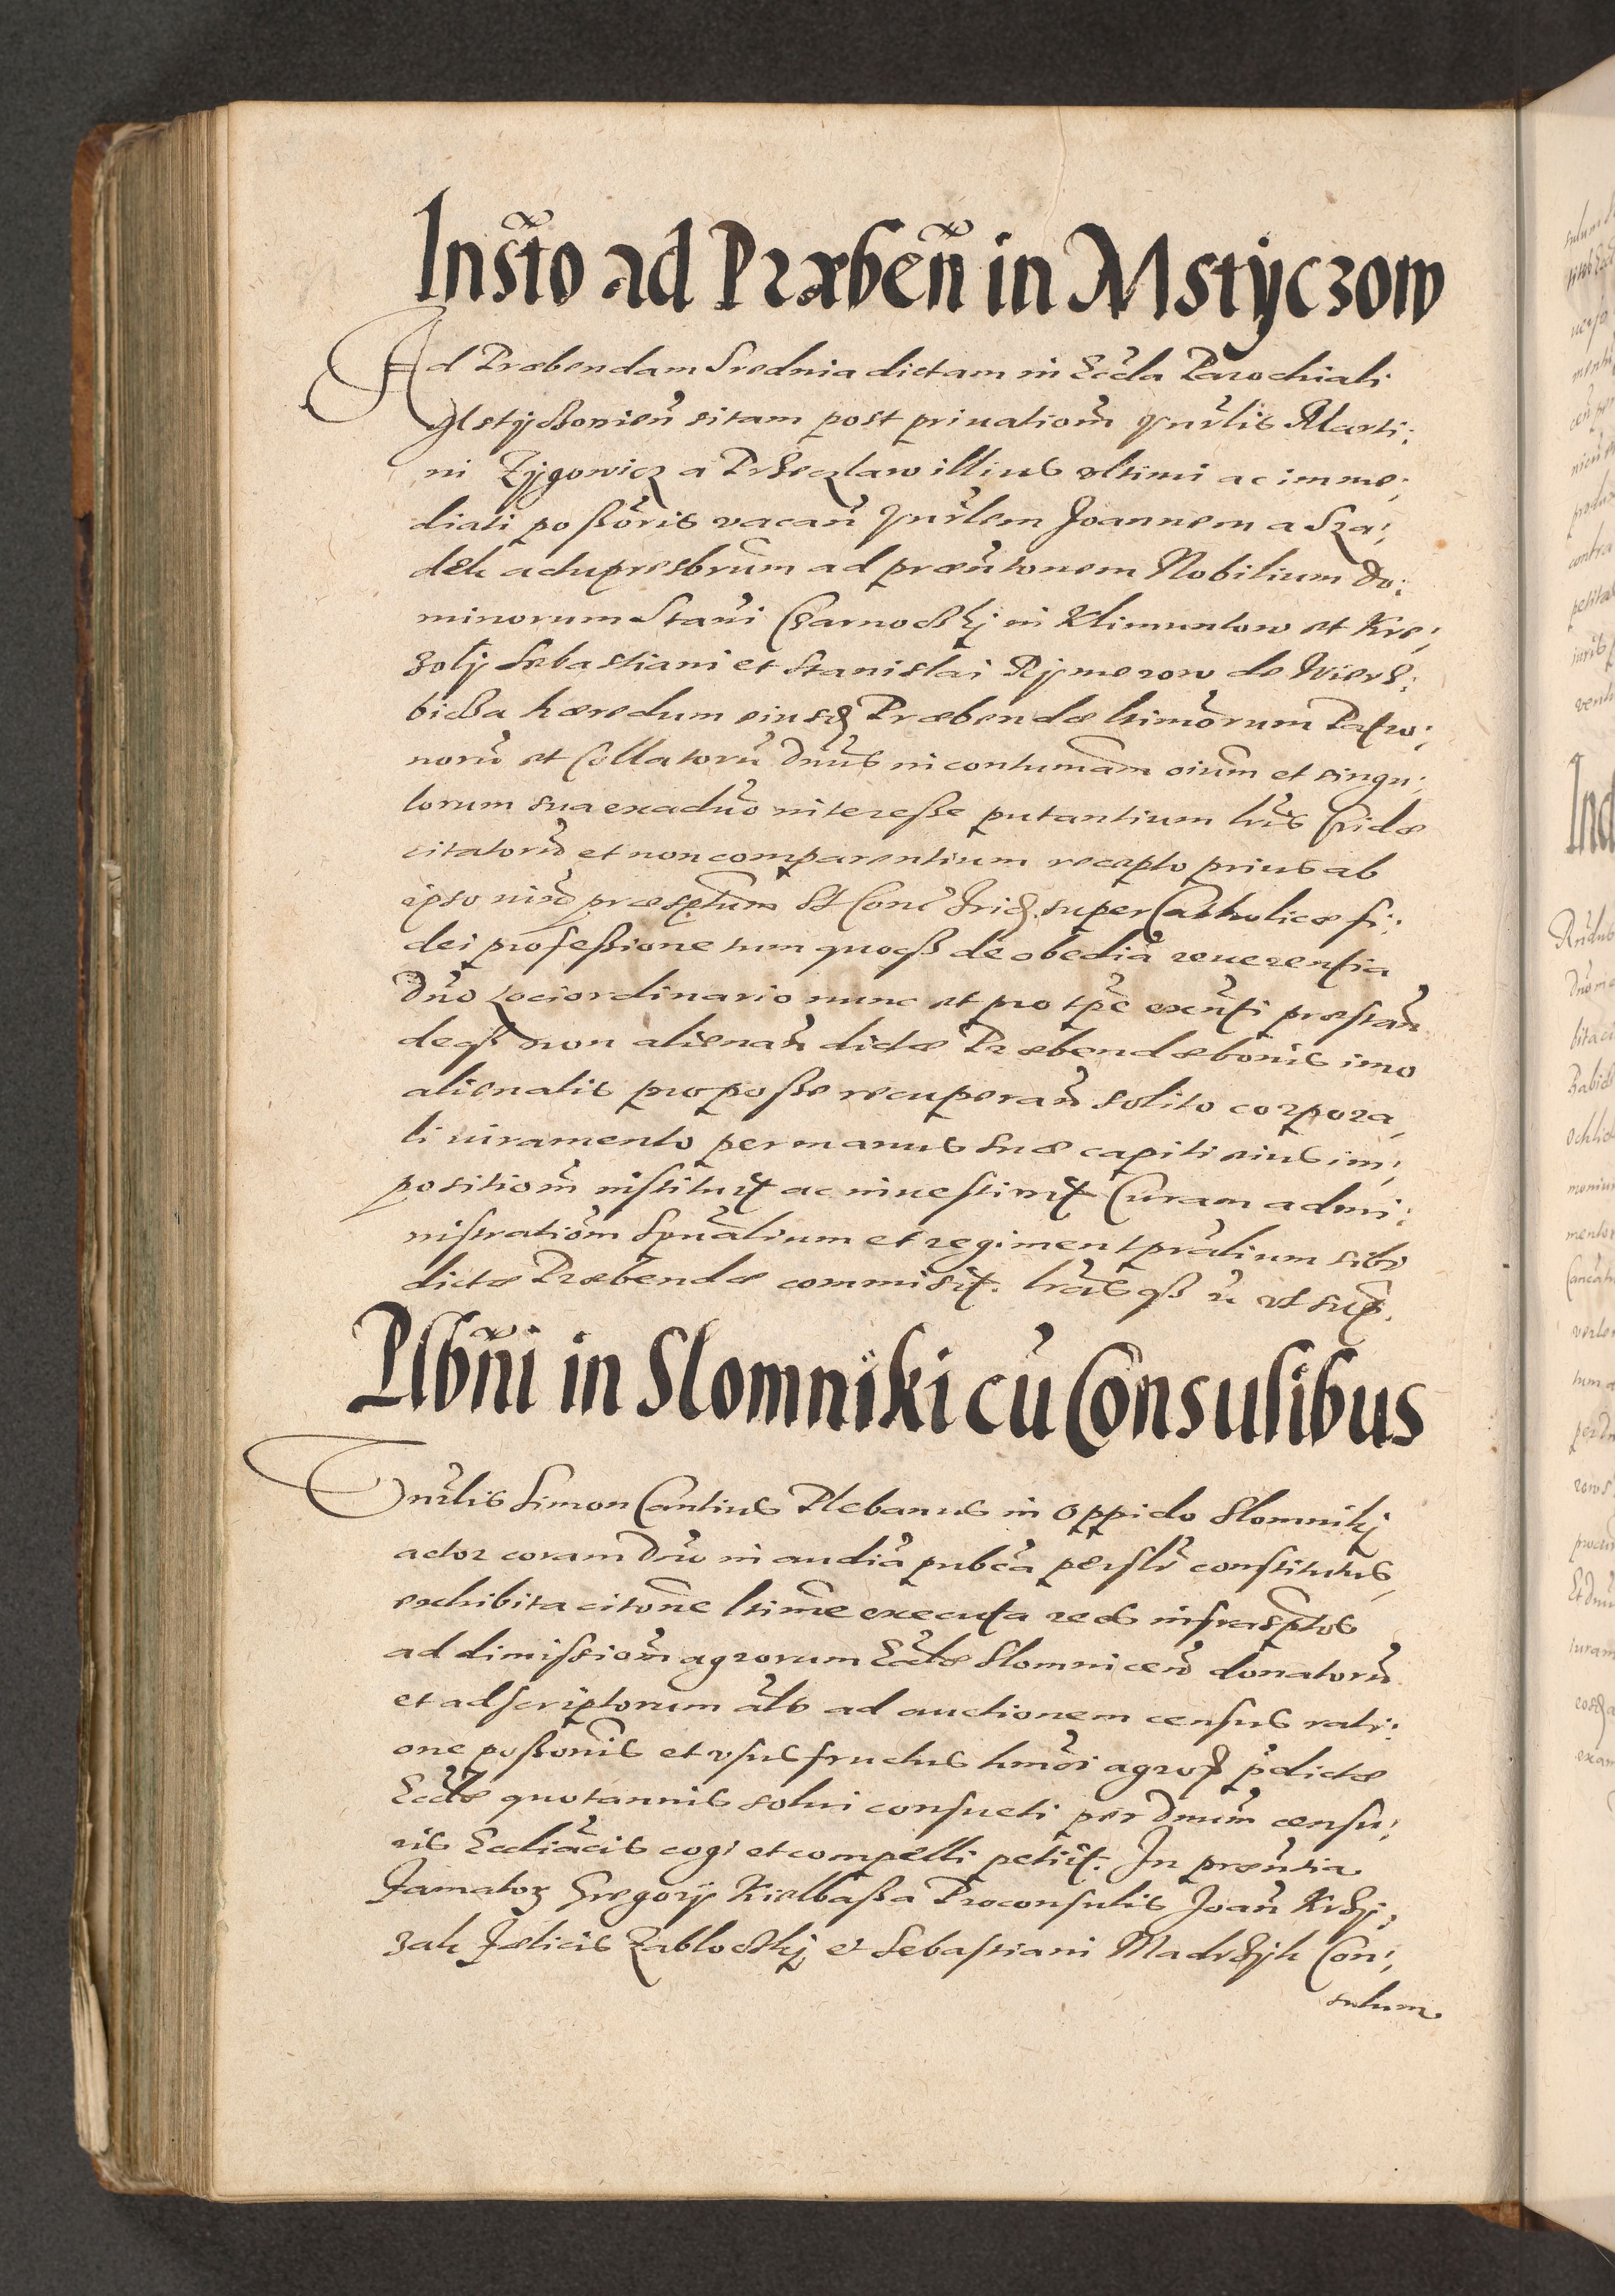 Insto͂ ad Præbeñ in Mstyczow
Ad Præbendam Srednia dictam in Eccla Parochiali
Mstyczovien̄ sitam post privationē̃ Hnrlis Marti:
ni Zygowicz a Przeczlaw illius vltimi ac imme:
diati poßoris vacan̄ Hnrlem Joannem a Sza:
dek adu presbrum ad præntonem Nobilium Do:
minorum Stani Czarnoczkÿ in Klimuntow et Kre:
zolÿ Sebastiani et Stanislai Rÿmerow de Wierz:
bicza hæredum eiusdẽ Præbendæ ltimorum Patro:
norũ et Collatorũ Dnus in contumãm oium et singu:
lorum sua exaduo interesse putantium lris Cridæ
citatorũ et non comparentium recepto prius ab
ipso iux præsptum St Conč Trid super Catholicæ fi:
dei professione tum quoqß de obedia reverentia
Dno Lociordinario nunc et pro tpe exnti præstan̄
deqß non alienan̄ dictæ Præbendæ bonis imo
alienatis pro posse recuperan̄ solito corpora
li iuramento per manus suæ capiti eius im:
positionẽ instituit ac investivit Curam admi:
nistrationẽ Spũalium et regimen tpralium sibi
dictæ Præbendæ commisit. lrasqß ꝛc vt supra.
Plbñi in Slomniki cũ Consulibus
Hnrlis Simon Cantius Plebanus in oppido Slomnikÿ
actor coram Dno in audia pubca persolr constitutus
exhibita citone ltime executa reos infrasptos
ad dimissionẽ agrorum Ecclæ Slomnicen̄ donatorũ
et adscriptorum als ad auctionem census rati:
one poßonis et vsusfructus hmoi agrorũ pdictæ
Ecclæ quotannis solvi consueti per Dnum censu:
ris Eccliacis cogi et compelli petiit. In præntia
Famatorũ Gregorÿ Kielbaßa Proconsulis Joan̄ Krzÿ:
zak Felicis Zabloczkÿ et Sebastiani Madrzÿk Con:
sulum